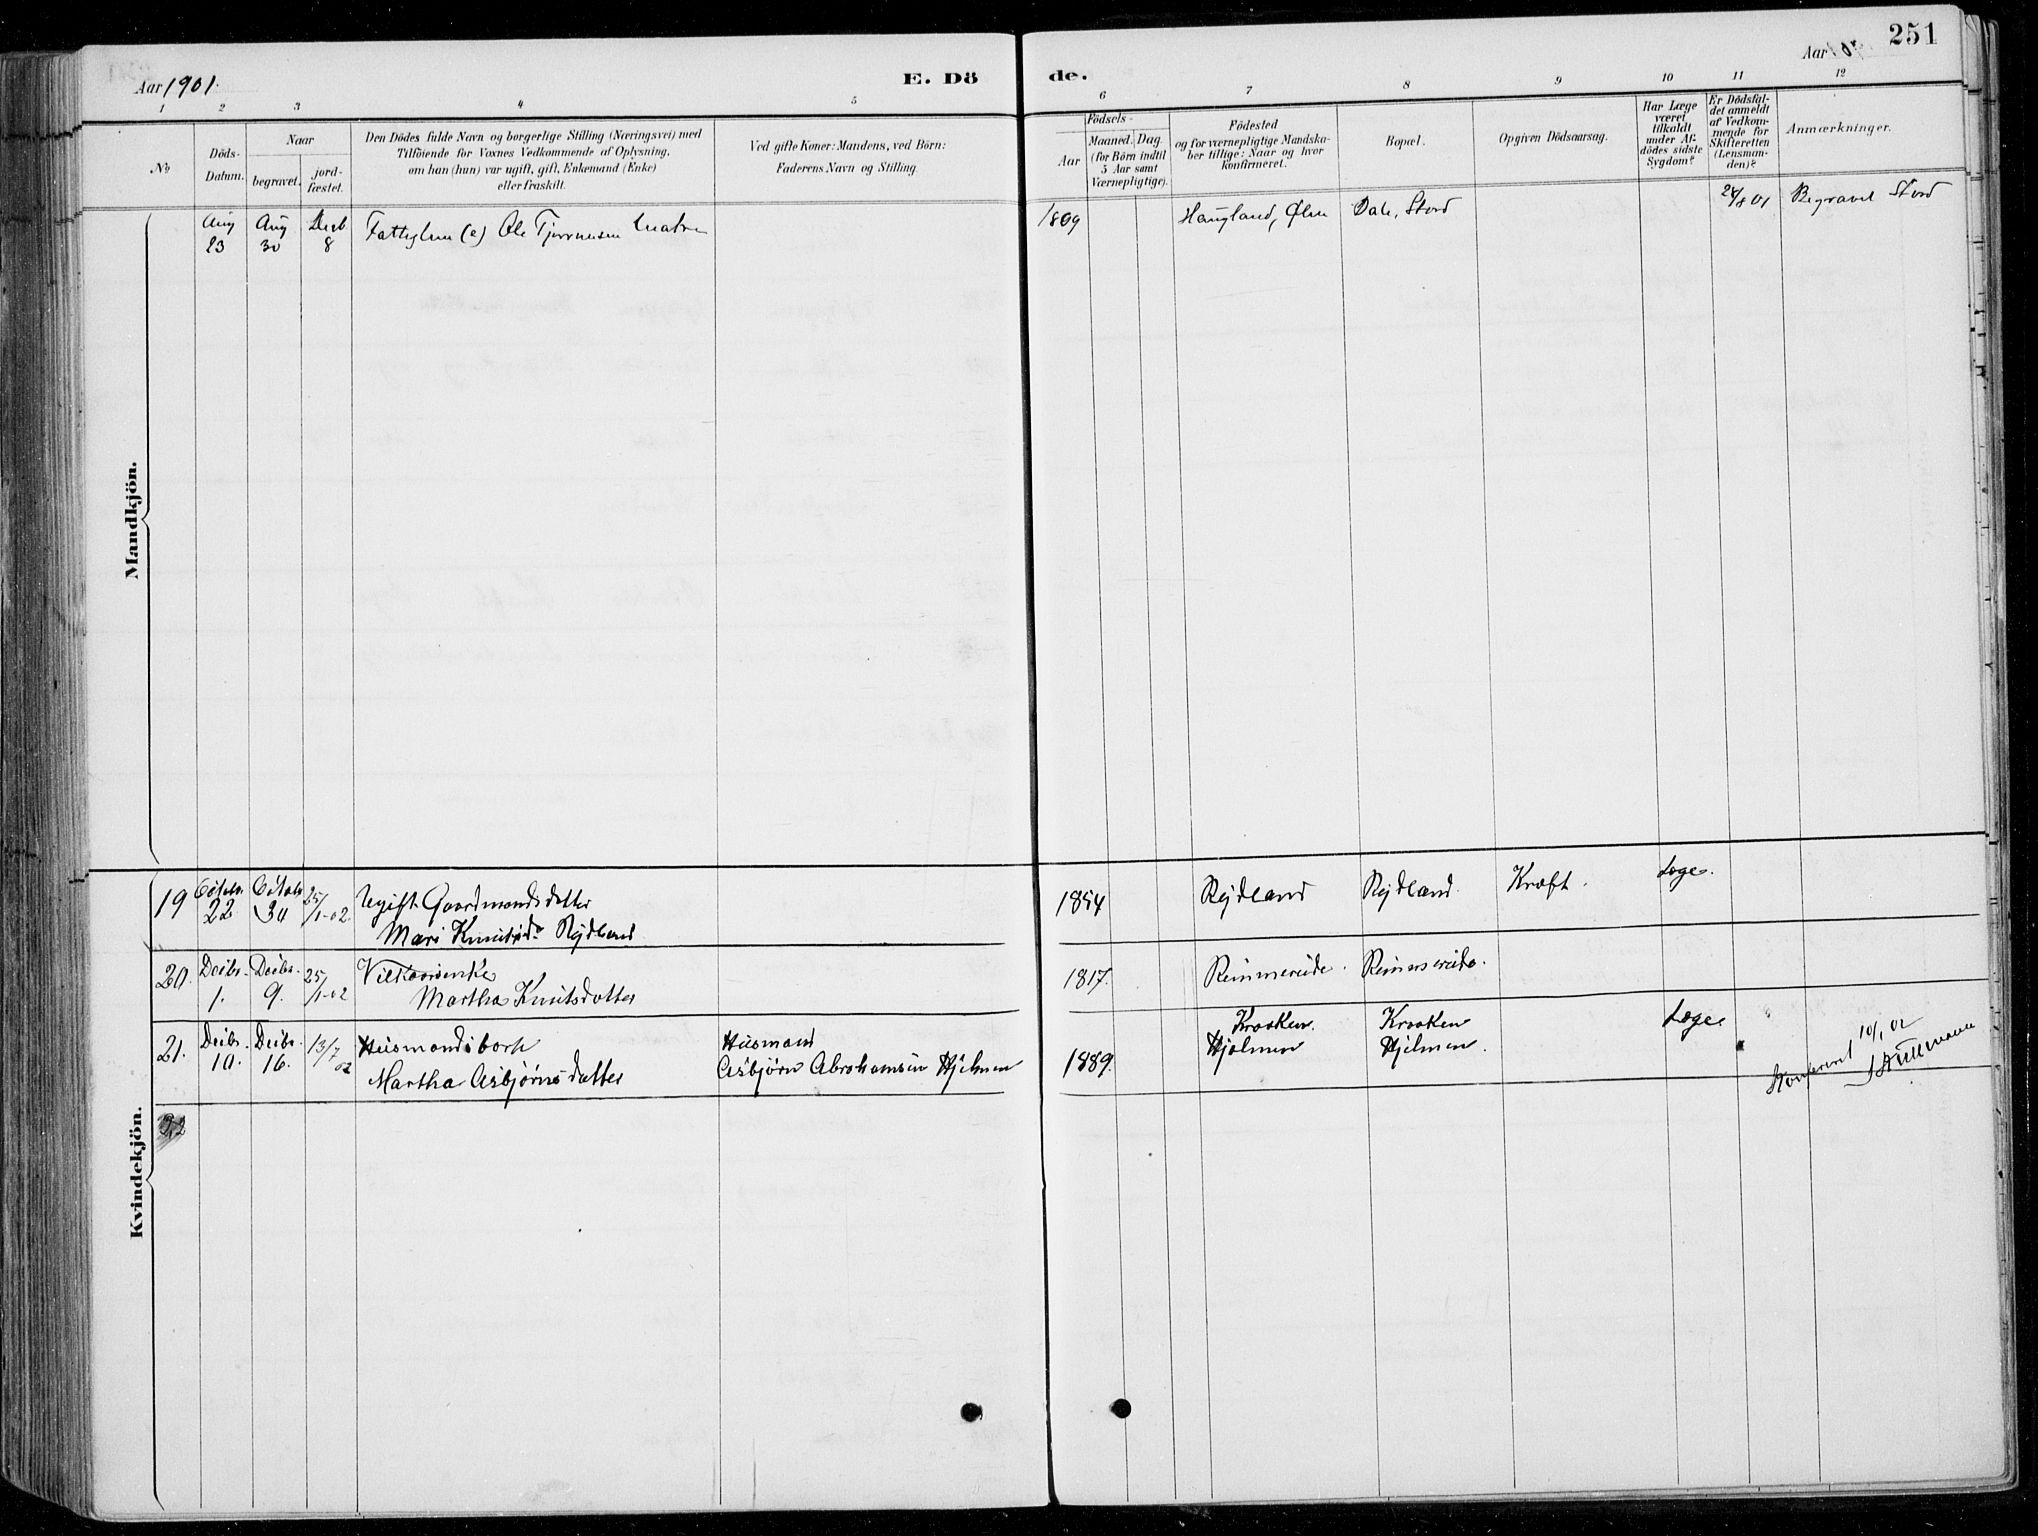 251
Aar 1901.
E. Dö
de.
Aar
1
2
3
4
5
6
7
8
9
10
11
12
No
Döds-
Datum.
Naar
begravet.
jord-
fæstet.
Den Dödes fulde Navn og borgerlige Stilling (Næringsvei) med
Tilföiende for Voxnes Vedkommende af Oplysning,
om han (hun) var ugift, gift, Enkemand (Enke)
eller fraskilt.
Ved gifte Koner: Mandens, ved Börn:
Faderens Navn og Stilling.
Födsels-
Aar
Maaned. Dag.
(for Börn indtil
5 Aar samt
Værnepligtige).
Födested
og for værnepligtige Mandska-
ber tillige: Naar og hvor
konfirmeret.
Bopæl.
Opgiven Dödsaarsag.
Har Læge
været
tilkaldt
under Af-
dödes sidste
Sygdom?
Er Dödsfal-
det anmeldt
af Vedkom-
mende for
Skifteretten
(Lensman-
den)?
Anmærkninger.
Mandkjön.
Aug
23
Aug
30
8
Ole
1809
Haugland, Ølen
Dale, Stord
24/8 01
Begravet Stord
Kvindekjön.
19
22
30
25/1-02
Ugift Gaardmandsdatter
Mari Knutsdr Rejdland
1854
Rejdland
Rejdland.
Kræft.
Læge.
20.
Decbr.
1.
Decbr.
9.
25/1-02
Vilkaarsenke
Martha Knutsdatter
1817.
Rimmereide.
Rimmereide.
21.
Decbr.
10.
Decbr.
16.
13/7 02
Husmandsbarn
Martha Asbjørnsdatter
Husmand
Asbjørn Abrahamsen Hjelmen
1889.
Kroken.
Hjelmen
Kroken
Hjelmen.
Læge
Konfereret 10/1 02
22